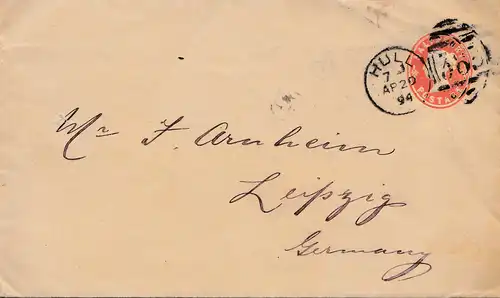 HULL
AP 20
94
POSTAGE
Mr F. Arnheim
Leipzig
Germany